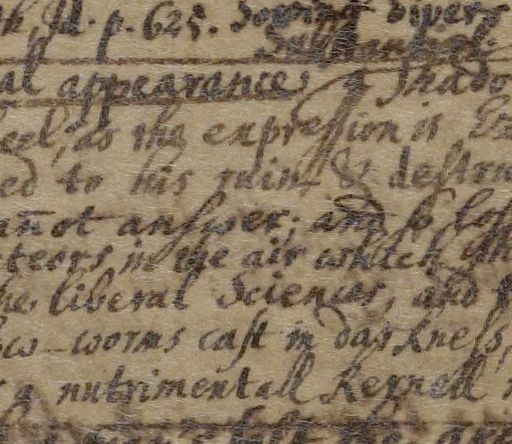 Id. p. 625. Sowing divers
Substances.
al appearance; a shado
eel, as the expression is Eze
ed to his ruin & destru
annot answer; and so los
teors in the air which
he liberal Sciences, and
ow-worms cast in darkness,
a nutrimentall kernell